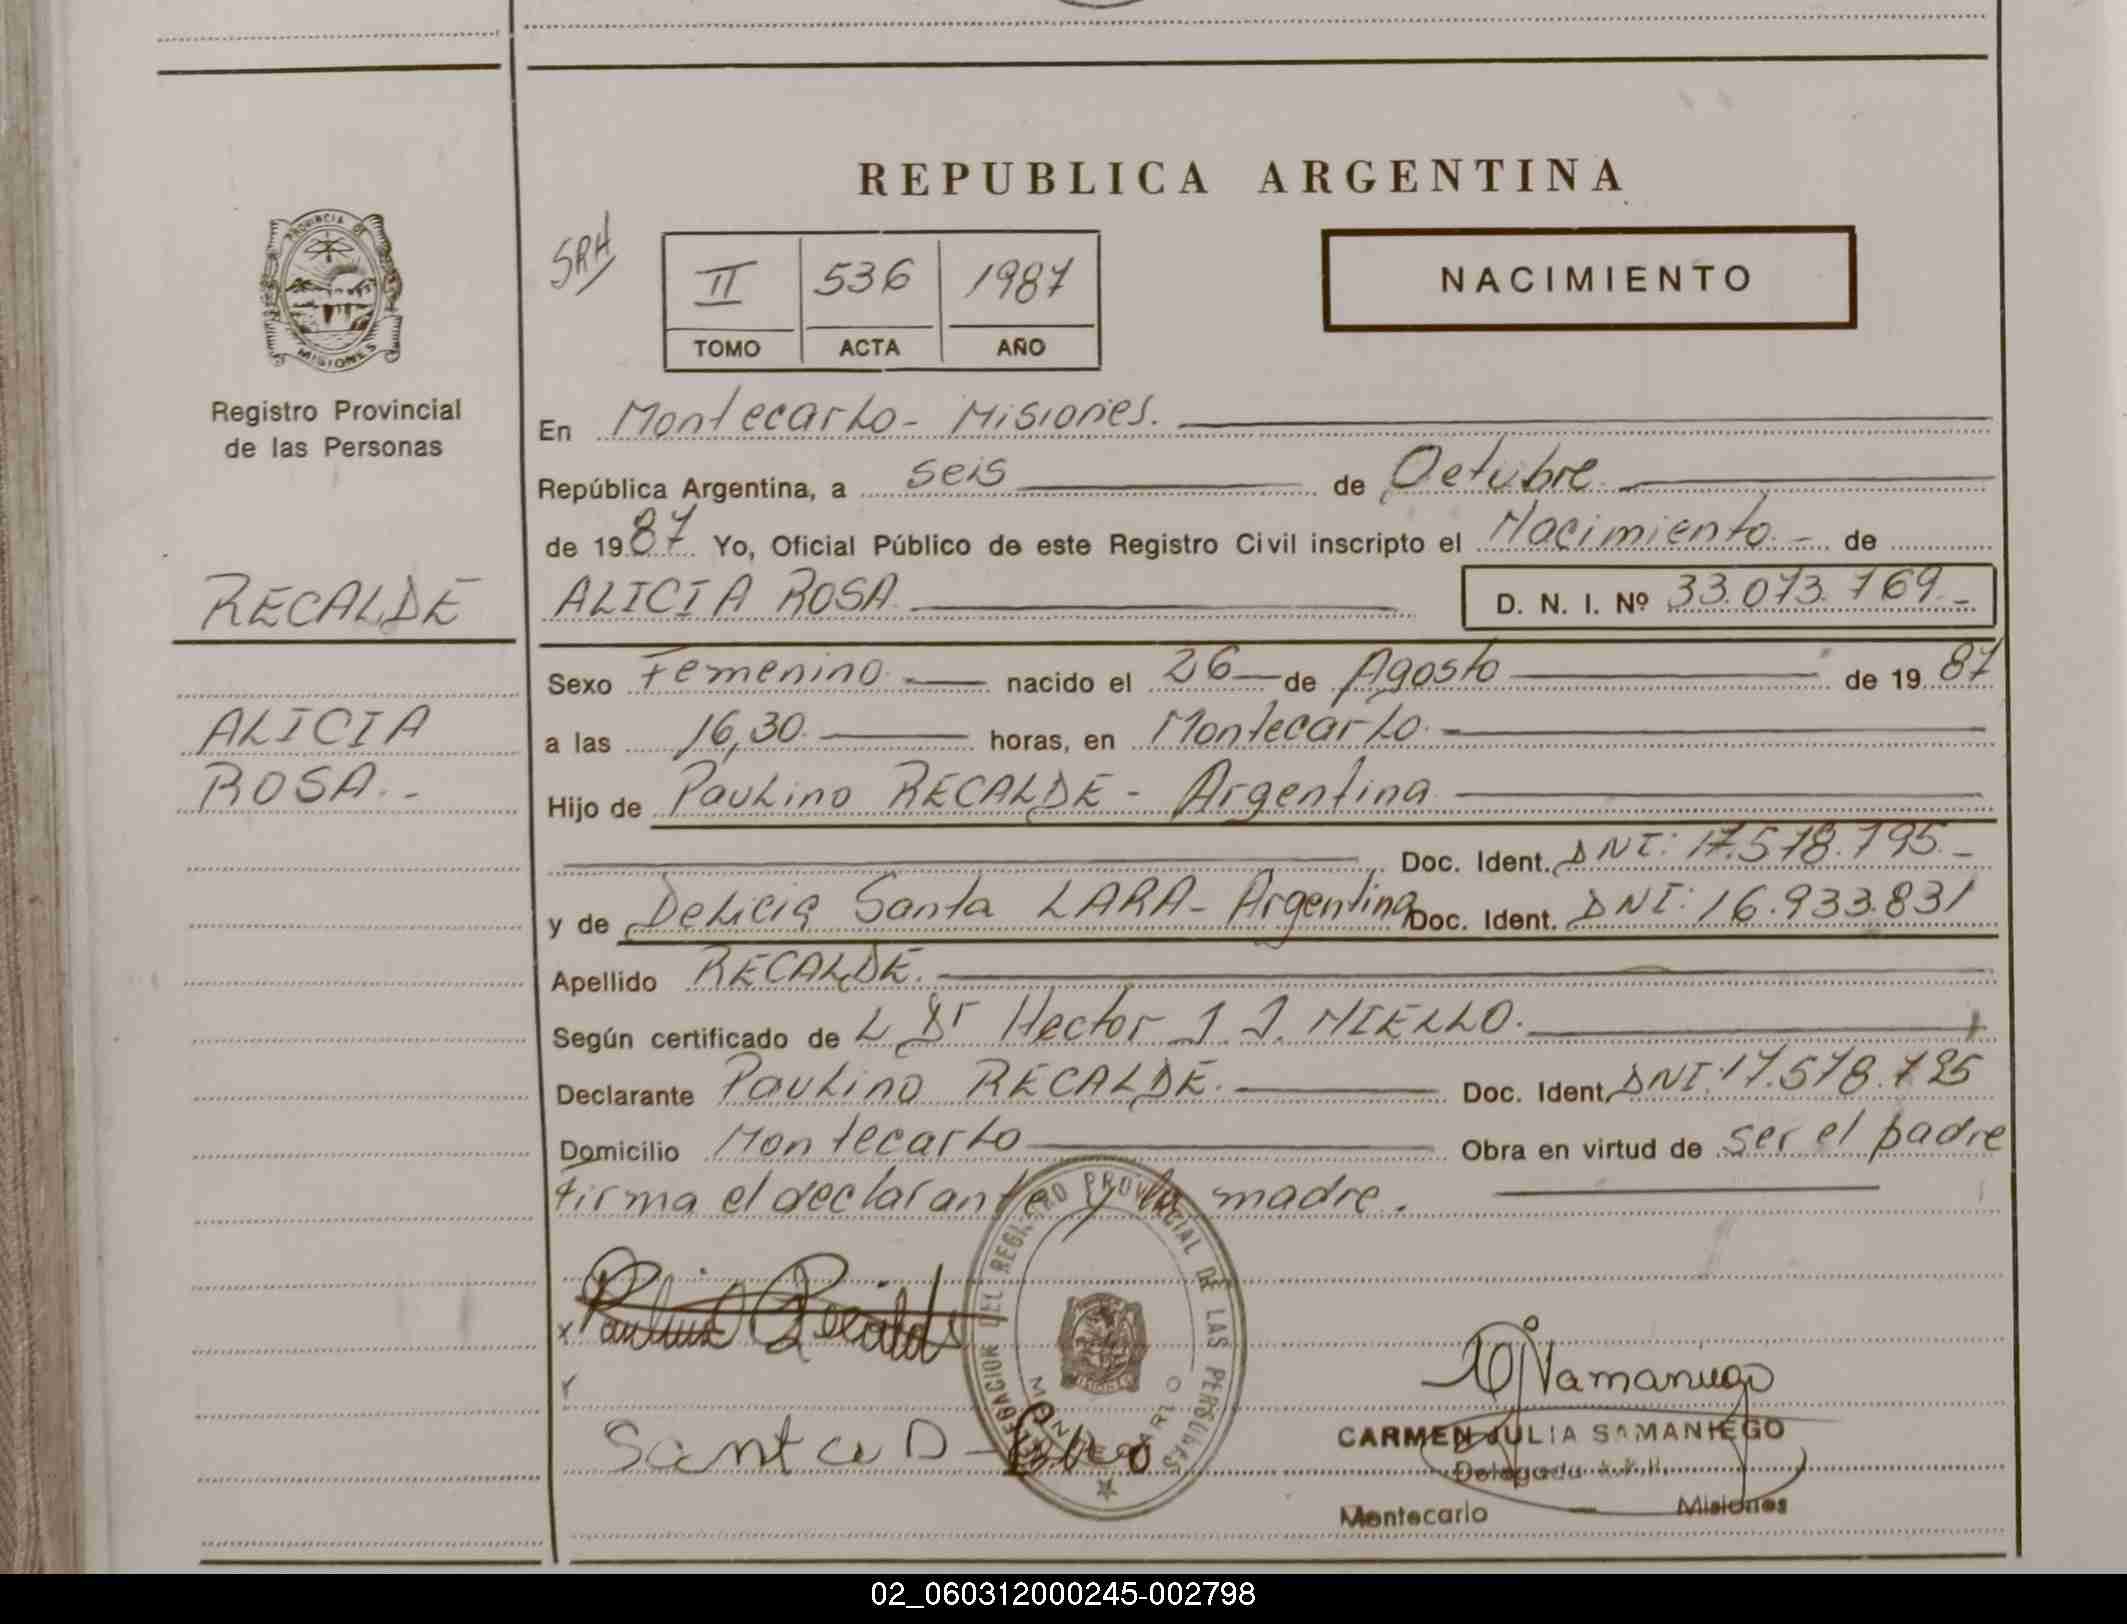 REPUBLICA ARGENTINA
PROVINCIA DE
MISIONES
Registro Provincial
de las Personas
SRH
II 536 1987
TOMO ACTA AÑO
NACIMIENTO
En Montecarlo - Misiones.
República Argentina, a seis de Octubre
de 1987 Yo, Oficial Público de este Registro Civil inscripto el Nacimiento - de
RECALDE
ALICIA ROSA D. N. I. Nº 33.073.769 -
Sexo Femenino nacido el 26 de Agosto de 1987
ALICIA
a las 16,30 horas, en Montecarlo
ROSA. -
Hijo de Paulino RECALDE - Argentina
Doc. Ident. DNI: 17.578.795 -
y de Delicia Santa LARA - Argentina Doc. Ident. DNI: 16.933.831
Apellido RECALDE.
Según certificado de L Dr Hector J. J. MIELLO.
Declarante Paulino RECALDE. Doc. Ident. DNI: 17.578.795
Domicilio Montecarlo Obra en virtud de ser el padre
Firma el declarante y la madre.
DELEGACION DEL REGISTRO PROVINCIAL DE LAS PERSONAS
MONTECARLO
x Paulino Recalde
Santa D -
Samaniego
CARMEN JULIA SAMANIEGO
Delegada
Montecarlo Misiones
02_060312000245-002798